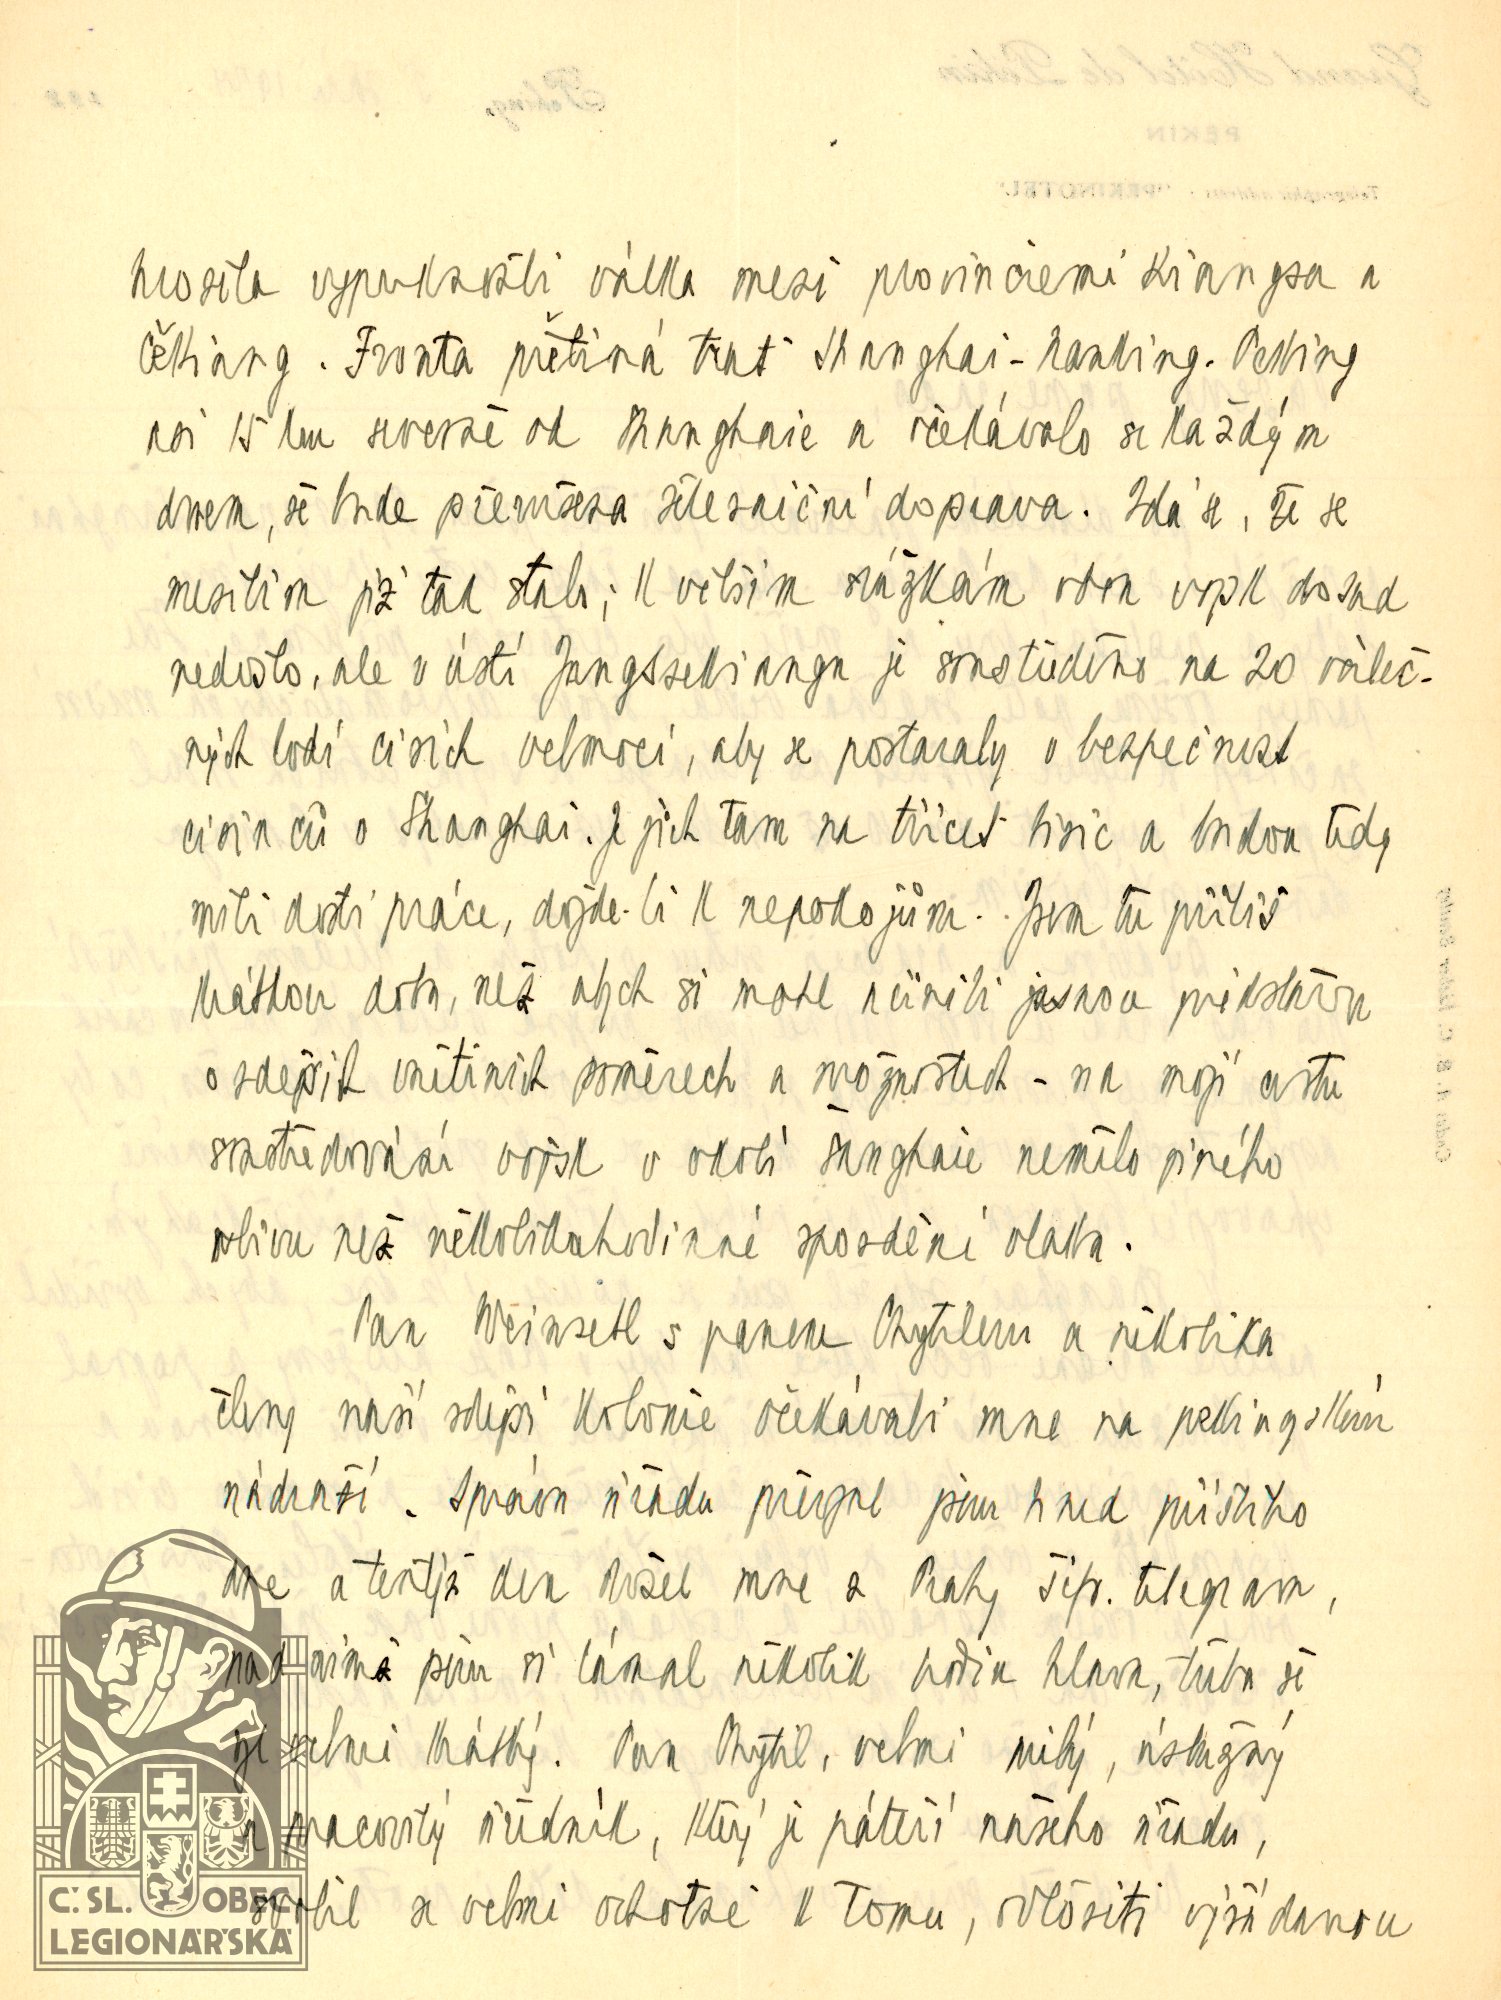 hrozila vypuknouti válka mezi provinciemi Kiangsu a
Čekiang. Fronta přetíná trať Shanghai-Nanking. Peking
asi 15 km severně od Shanghaie a očekávalo se každým
dnem, že bude přerušena železniční doprava. Zdá se, že se
mezitím již tak stalo; k větším srážkám obou vojsk dosud
nedošlo, ale v ústí Jangtsekiangu je soustředěno na 20 váleč-
ných lodí cizích velmocí, aby se postaraly o bezpečnost
cizinců v Shanghai. Je jich tam na třicet tisíc a budou tedy
míti dosti práce, dojde-li k nepokojům. Jsem tu příliš
krátkou dobu, než abych si mohl učiniti jasnou představu
o zdejších vnitřních poměrech a možnostech - na moji cestu
soustřeďování vojsk v okolí Šanghaie nemělo jiného
vlivu než několikahodinné zpoždění vlaku.
Pan Weinzetl s panem Chytilem a několika
členy naší zdejší kolonie očekávali mne na pekingském
nádraží. Správu úřadu převzal jsem hned příštího
dne a tentýž den došel mne z Prahy šifr. telegram,
nad nímž jsem si lámal několik hodin hlavu, třeba že
byl velmi krátký. Pan Chytil, velmi milý, úslužný
a pracovitý úředník, který je páteří našeho úřadu,
svolil se velmi ochotně k tomu, odložiti vyžádanou
Č. SL. OBEC
LEGIONÁŘSKÁ